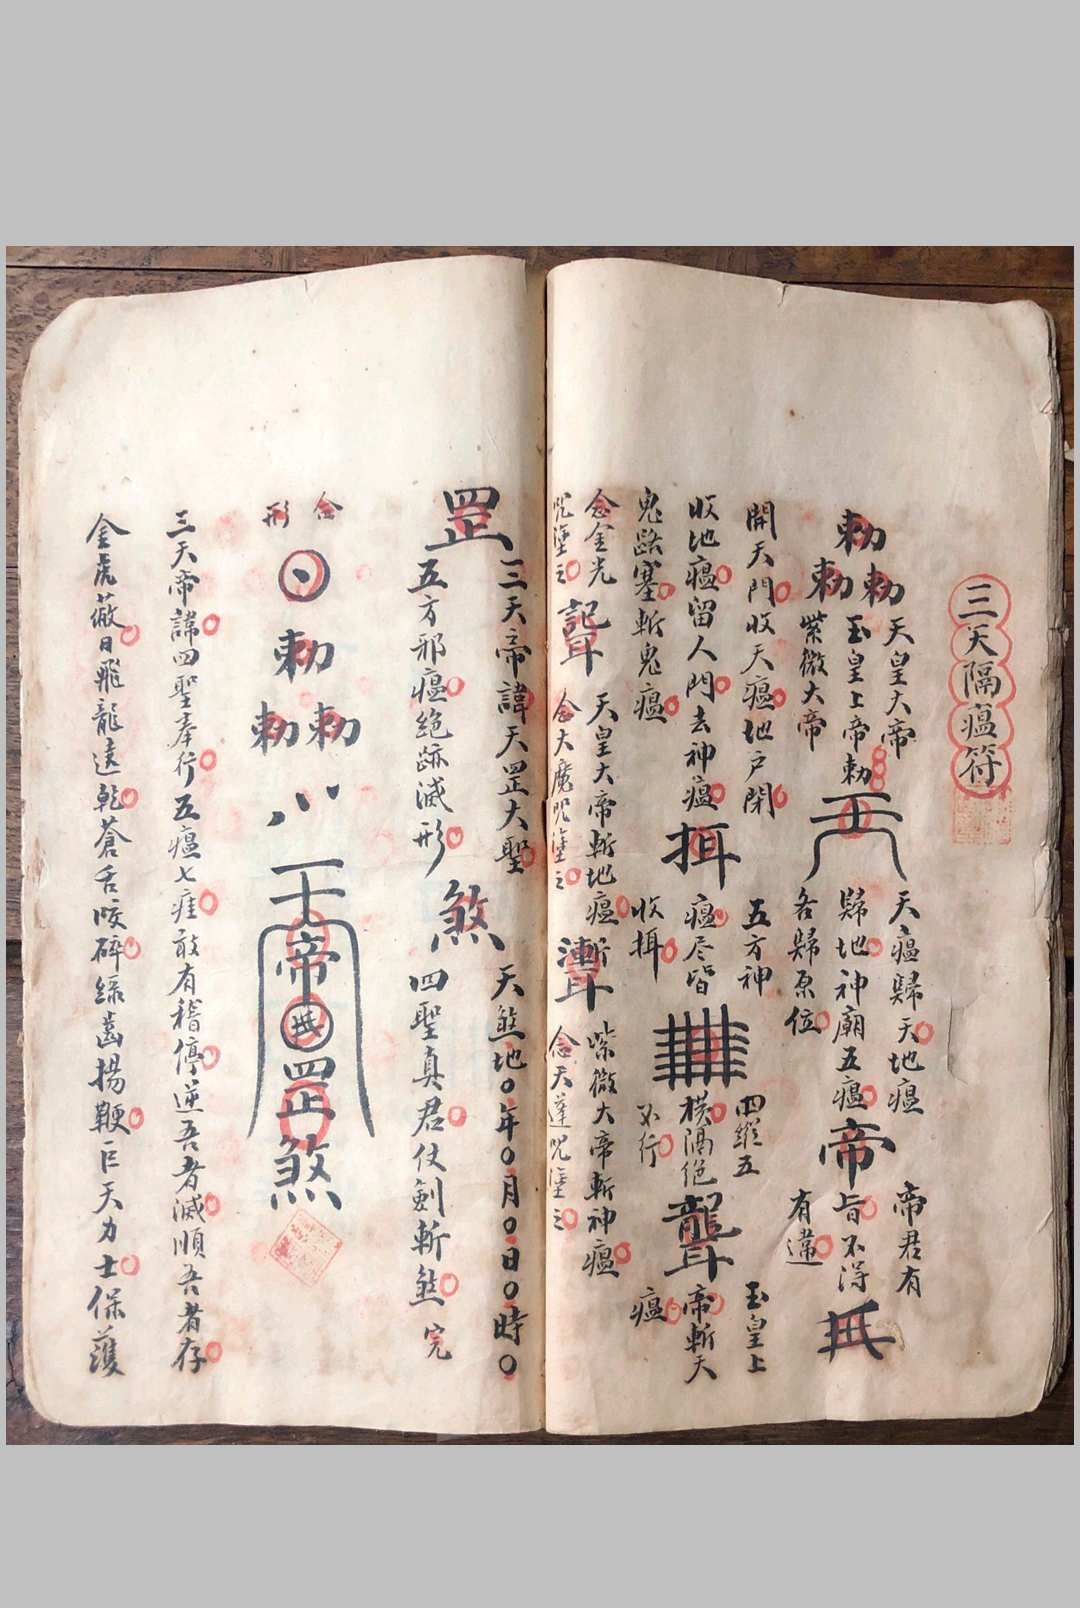 三天隔瘟符
勅
勅勅
天皇大帝
玉皇上帝勅
紫微大帝
天瘟歸天地瘟
歸地神廟五瘟
各歸原位
帝
帝君有
旨不得
有違
開天門收天瘟地户閉
收地瘟留人門去神瘟
鬼路塞斬鬼瘟
五方神
瘟尽皆
收
四縱五
横隔絕
不行
玉皇上
帝斬天
瘟
念金光
咒塗之
天皇大帝斬地瘟
念大魔咒塗之
紫微大帝斬神瘟
念天蓬咒塗之
罡
三天帝諱天罡大聖
五方邪瘟絕跡滅形
煞
天煞地〇年〇月〇日〇時〇
四聖真君仗劍斬煞 完
合形
勅
勅勅
帝
罡
煞
三天帝諱四聖奉行五瘟七瘧敢有稽停逆吾者滅順吾者存
金虎蔽日飛龍遶乾蒼舌咬碎綠齒揚鞭巨天力士保護